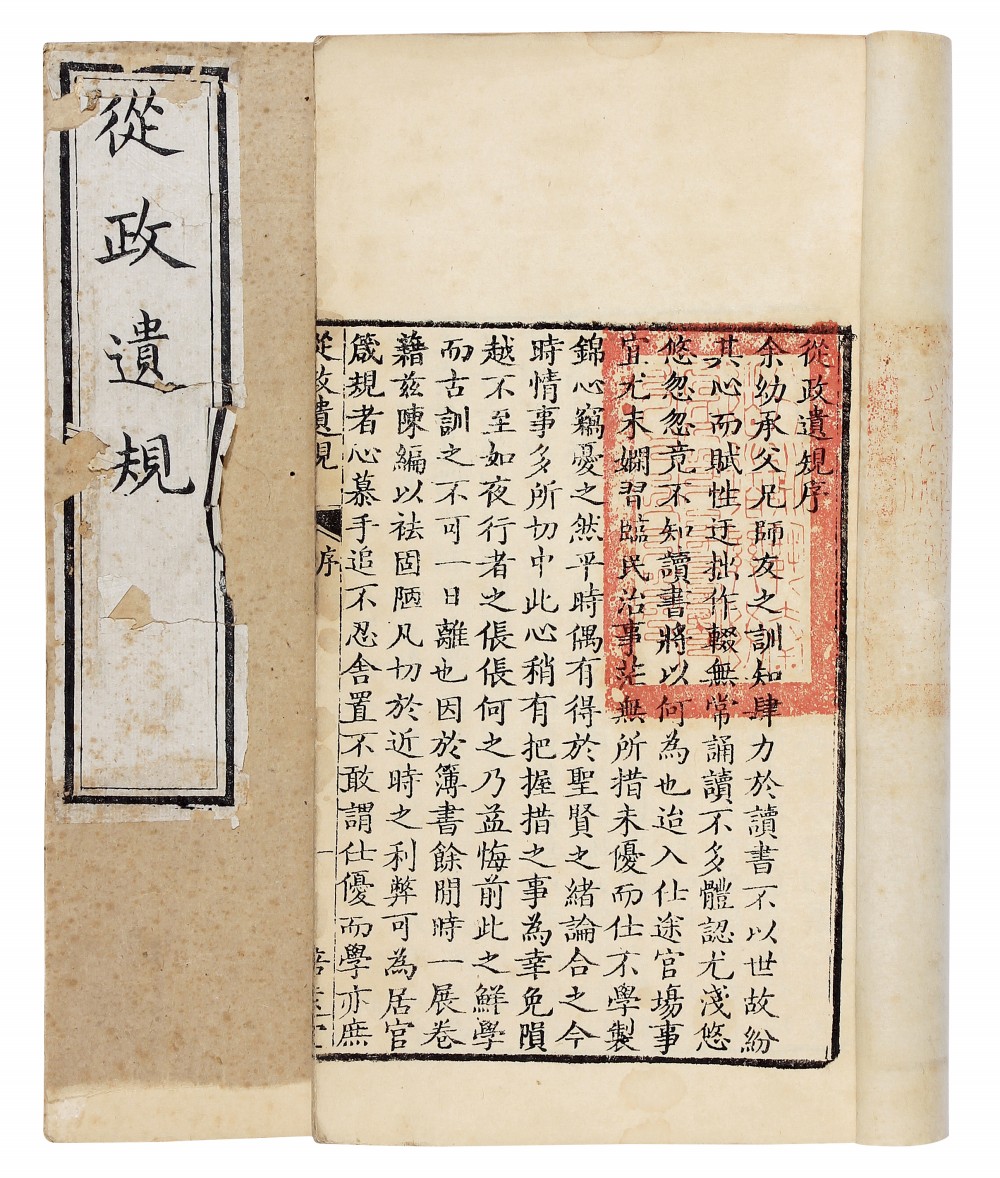 從政遺規
從政遺規序
余幼承父兄師友之訓知肆力於讀書不以世故紛
其心而賦性迂拙作輟無常誦讀不多體認尤淺悠
悠忽忽竟不知讀書將以何為也迨入仕途官場事
宜尤未嫻習臨民治事茫無所措未優而仕不學製
錦心竊憂之然平時偶有得於聖賢之緒論合之今
時情事多所切中此心稍有把握措之事為幸免隕
越不至如夜行者之倀倀何之乃益悔前此之鮮學
而古訓之不可一日離也因於簿書餘閒時一展卷
藉茲陳編以祛固陋凡切於近時之利弊可為居官
箴規者心慕手追不忍舍置不敢謂仕優而學亦庶
從政遺規 序 一